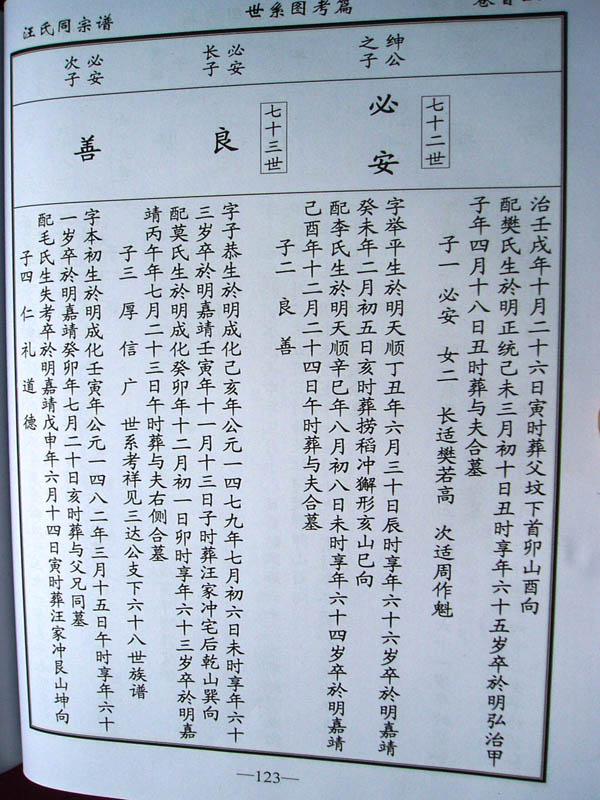 汪氏同宗谱
世系图考篇
治壬戌年十月二十六日寅时葬父坟下首卯山酉向
配樊氏生於明正统己未三月初十日丑时享年六十五岁卒於明弘治甲
子年四月十八日丑时葬与夫合墓
子一 必安 女二 长适樊若高 次适周作魁
七十二世
绅公之子
必安
字举平生於明天顺丁丑年六月三十日辰时享年六十六岁卒於明嘉靖
癸未年二月初五日亥时葬捞稻冲獬形亥山巳向
配李氏生於明天顺辛巳年八月初八日未时享年六十四岁卒於明嘉靖
己酉年十二月二十四日午时葬与夫合墓
子二 良 善
七十三世
必安长子
良
字子恭生於明成化己亥年公元一四七九年七月初六日未时享年六十
三岁卒於明嘉靖壬寅年十一月十三日子时葬汪家冲宅后乾山巽向
配莫氏生於明成化癸卯年十二月初一日卯时享年六十三岁卒於明嘉
靖丙午年七月二十三日午时葬与夫右侧合墓
子三 厚 信 广 世系考祥见三达公支下六十八世族谱
必安次子
善
字本初生於明成化壬寅年公元一四八二年三月十五日午时享年六十
一岁卒於明嘉靖癸卯年七月二十日亥时葬与父兄同墓
配毛氏生失考卒於明嘉靖戊申年六月十四日寅时葬汪家冲艮山坤向
子四 仁 礼 道 德
—123—